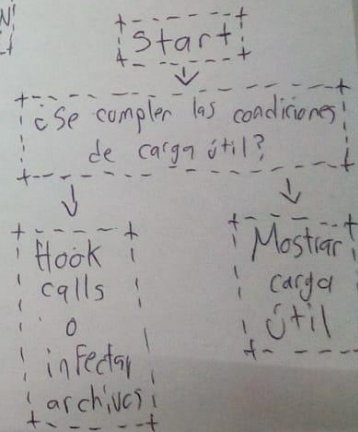 Start
¿Se cumplen las condiciones
de carga útil?
Hook
calls
o
infectar
archivos
Mostrar
carga
útil